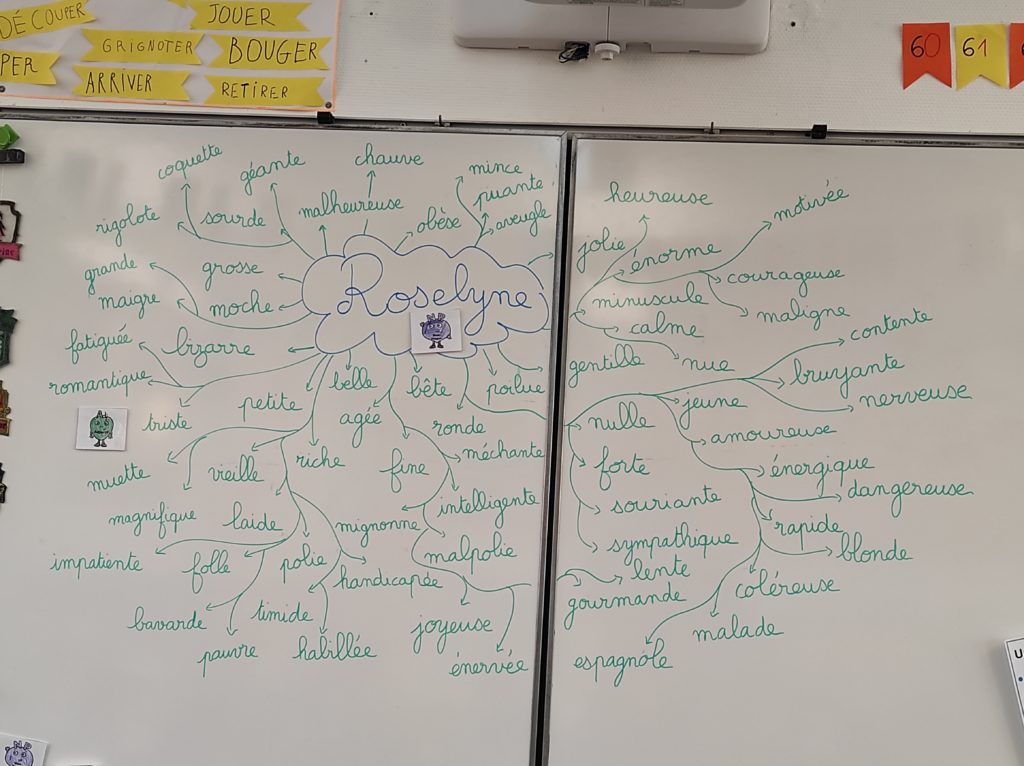 DÉCOUPER
JOUER
GRIGNOTER
BOUGER
PER
ARRIVER
RETIRER
60
61
coquette
géante
chauve
mince
puante
rigolote
sourde
malheureuse
obèse
aveugle
grande
grosse
maigre
moche
Roselyne
NP
fatiguée
bizarre
romantique
belle
bête
poilue
triste
petite
agée
ronde
muette
vieille
riche
fine
méchante
magnifique
laide
mignonne
intelligente
impatiente
folle
polie
handicapée
malpolie
bavarde
timide
joyeuse
pauvre
habillée
énervée
heureuse
motivée
jolie
énorme
courageuse
minuscule
maligne
calme
contente
gentille
nue
bruyante
nerveuse
nulle
jeune
amoureuse
forte
énergique
dangereuse
souriante
rapide
sympathique
blonde
lente
coléreuse
gourmande
malade
espagnole
NP
U